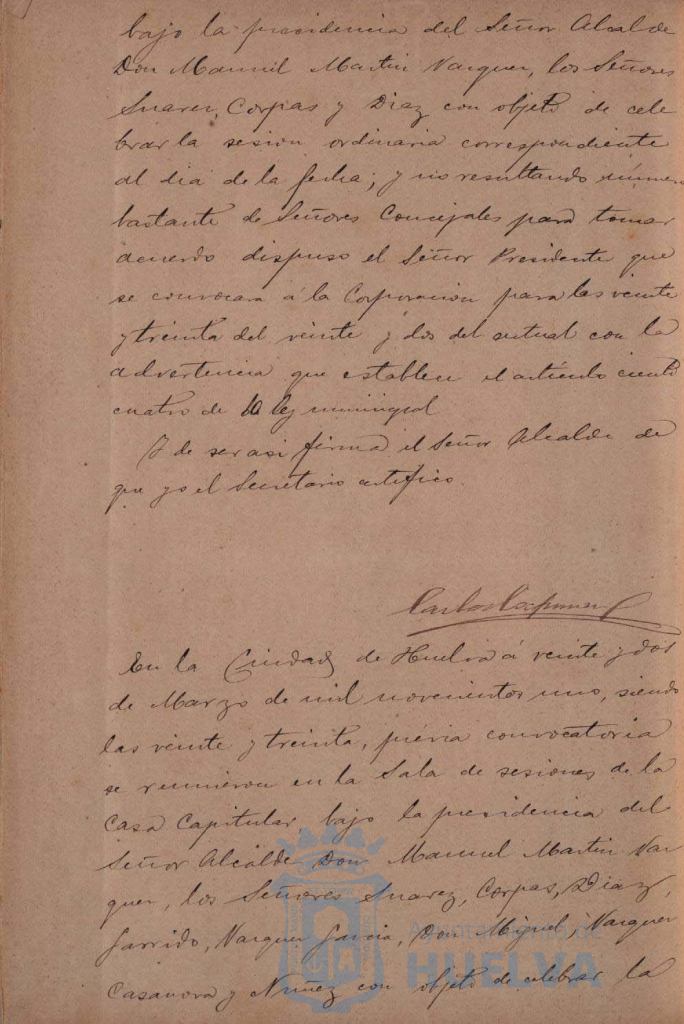 bajo la presidencia del Señor Alcalde
Don Manuel Martin Vazquez, los Señores
Suarez, Corpas y Diaz con objeto de cele
brar la sesion ordinaria correspondiente
al dia de la fecha; y no resultando número
bastante de Señores Concejales para tomar
acuerdo dispuso el Señor Presidente que
se convocara á la Corporacion para las veinte
y treinta del veinte y dos del actual con la
advertencia que establece el artículo ciento
cuatro de la ley municipal
Y de ser asi firma el Señor Alcalde de
que yo el Secretario certifico.
En la Ciudad de Huelva á veinte y dos
de Marzo de mil novecientos uno, siendo
las veinte y treinta, prévia convocatoria
se reunieron en la Sala de sesiones de la
Casa Capitular, bajo la presidencia del
Señor Alcalde Don Manuel Martin Vaz
quez, los Señores Suarez, Corpas, Diaz,
Garrido, Vazquez Garcia, Don Miguel, Vazquez
Casanova y Nuñez con objeto de celebrar la
Ayuntamiento de
HUELVA